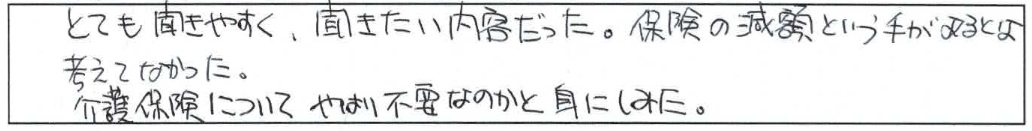 とても聞きやすく、聞きたい内容だった。保険の減額という手があるとは
考えてなかった。
介護保険について やはり不要なのかと身にしみた。